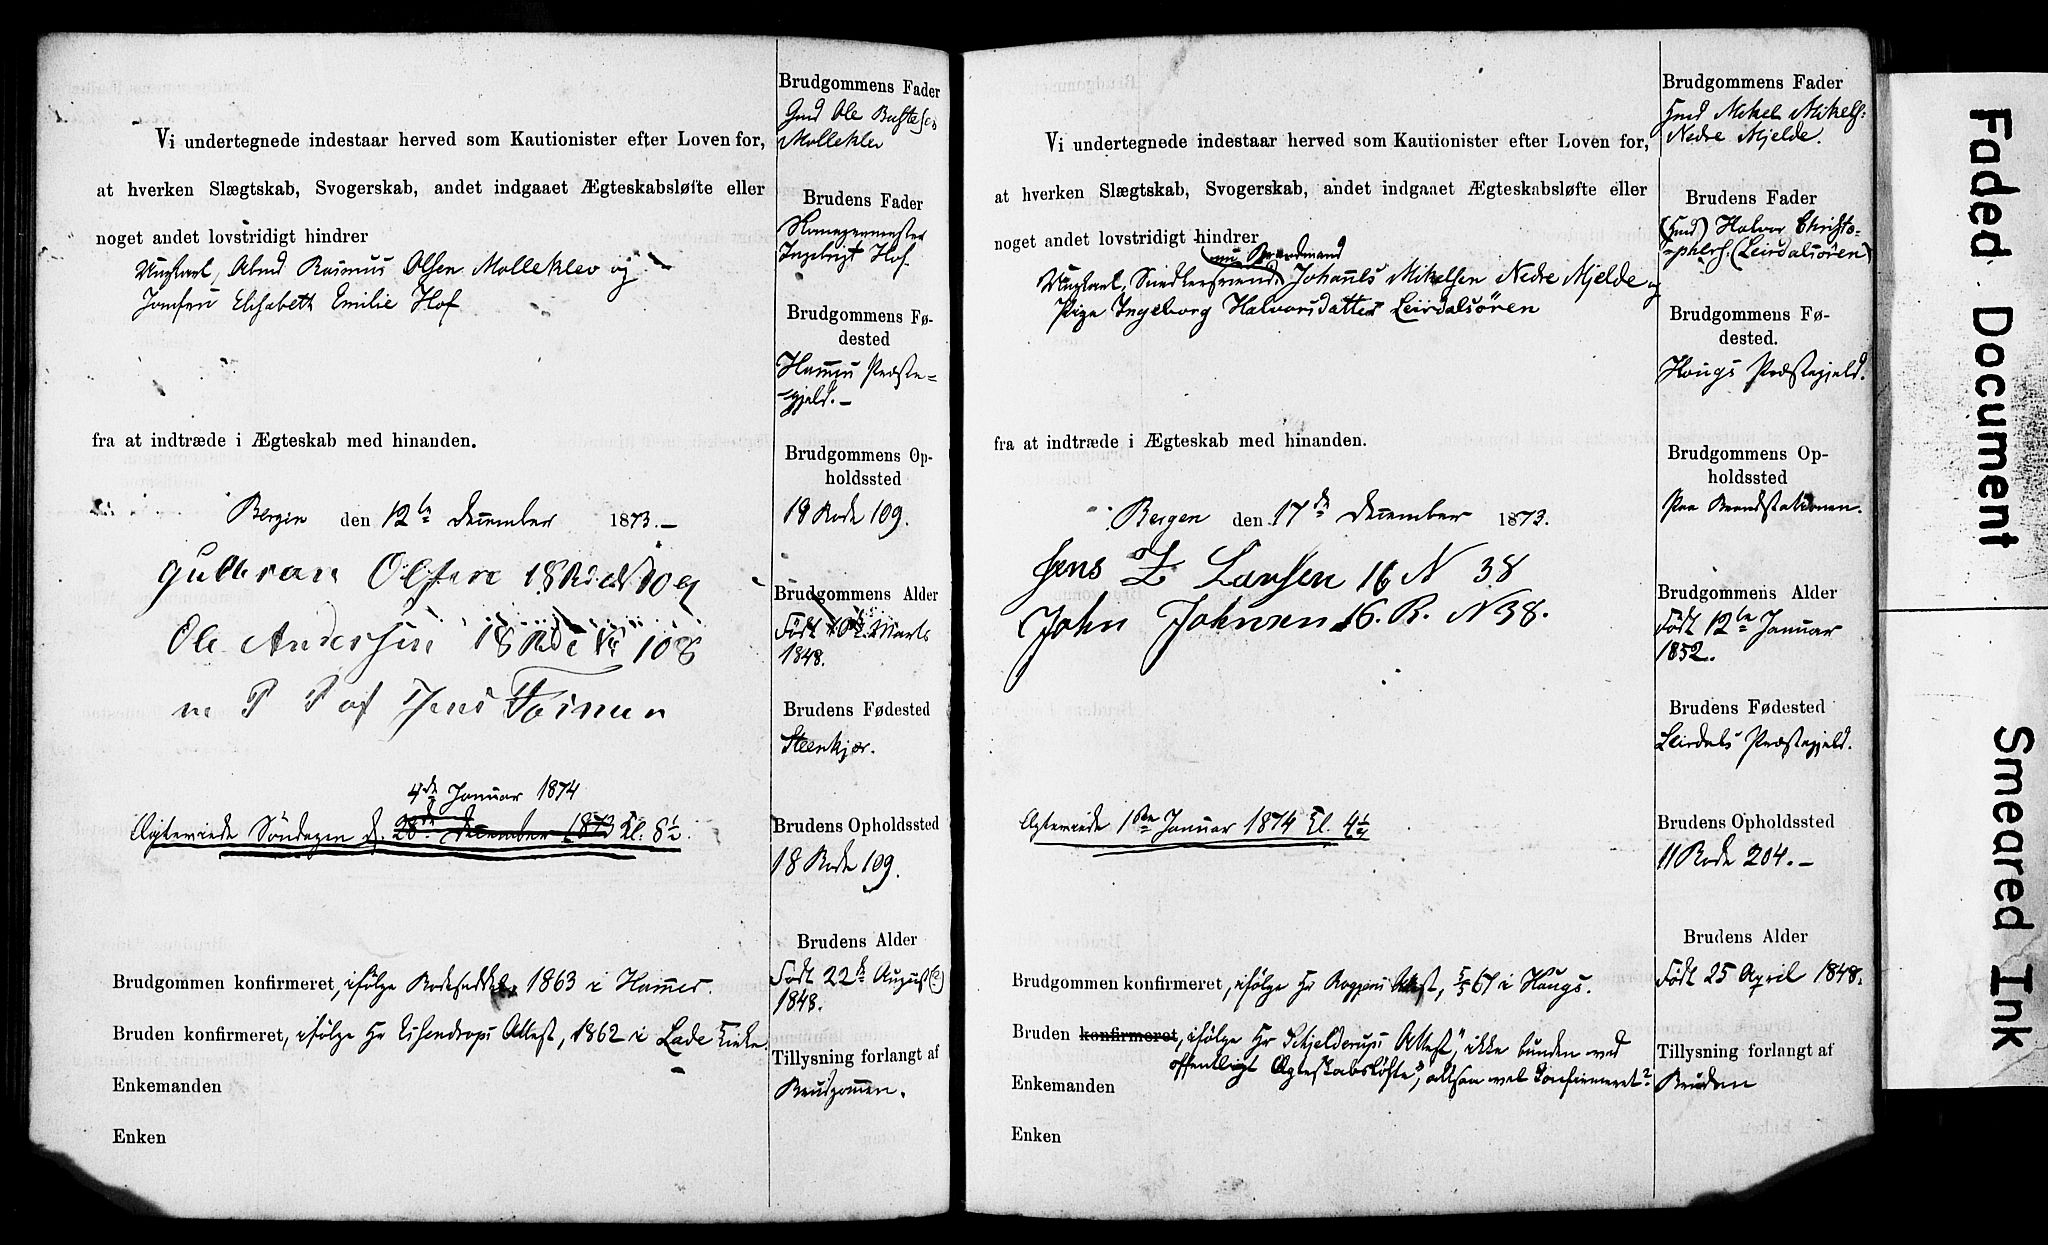 Vi undertegnede indestaar herved som Kautionister efter Loven for,
at hverken Slægtskab, Svogerskab, andet indgaaet Ægteskabsløfte eller
noget andet lovstridigt hindrer
Ungkarl, Rasmus Olsen Molleklev og
Jomfru Elisabeth Emilie Hof
fra at indtræde i Ægteskab med hinanden.
Bergen den 12te December 1873.-
Olsen 18 Rode 109
Ole Andersen 18 Rode No 108
m P P af Jens
4de Januar 1874
Ægteviede Söndagen d. 28de December 1873 Kl. 6½.
Brudgommen konfirmeret, ifölge Rodeseddel 1863 i Hammer.
Bruden konfirmeret, ifölge Hr Attest, 1862 i Lade Kirke.
Enkemanden
Enken
Brudgommens Fader
Gmd Ole
Molleklev
Brudens Fader
Ingebrigt Hof.
Brudgommens Fø-
dested
Hammer Præste=
=gjeld.-
Brudgommens Op-
holdssted
18 Rode 109.
Brudgommens Alder
Födt 10de Marts
1848.
Brudens Fødested
Steenkjær.
Brudens Opholdssted
18 Rode 109.
Brudens Alder
Födt 22de August (?)
1848.
Tillysning forlangt af
Brudgommen.
Vi undertegnede indestaar herved som Kautionister efter Loven for,
at hverken Slægtskab, Svogerskab, andet indgaaet Ægteskabsløfte eller
noget andet lovstridigt hindrer
nu Brandmand
Ungkarl, Snedkersvend Johannes Mikelsen Nedre Mjelde og
Pige Ingeborg Halvorsdatter Leirdalsören
fra at indtræde i Ægteskab med hinanden.
Bergen den 17de December 1873.
Jens Z Larsen 16 N 38
John Johnsen 16. R. N 38.
Ægteviede 1ste Januar 1874 Kl. 4¼
Brudgommen konfirmeret, ifölge Hr Attest, 67 i Haugs.
Bruden konfirmeret, ifölge Hr Schjelderups Attest, "ikke bunden ved
offentligt Ægteskabslöfte", altsaa vel konfirmeret?
Enkemanden
Enken
Brudgommens Fader
Gmd Mikel Mikels:
Nedre Mjelde.
Brudens Fader
(Gmd) Halvor Christo=
=phers. (Leirdalsören)
Brudgommens Fø-
dested.
Hougs Præstegjeld.
Brudgommens Op-
holdssted
Paa Brandstationen.
Brudgommens Alder
Födt 12te Januar
1852.
Brudens Fødested
Leirdals Præstegjeld.
Brudens Opholdssted
11 Rode 204.-
Brudens Alder
Födt 25 April 1848.
Tillysning forlangt af
Bruden
Faded Document
Smeared Ink